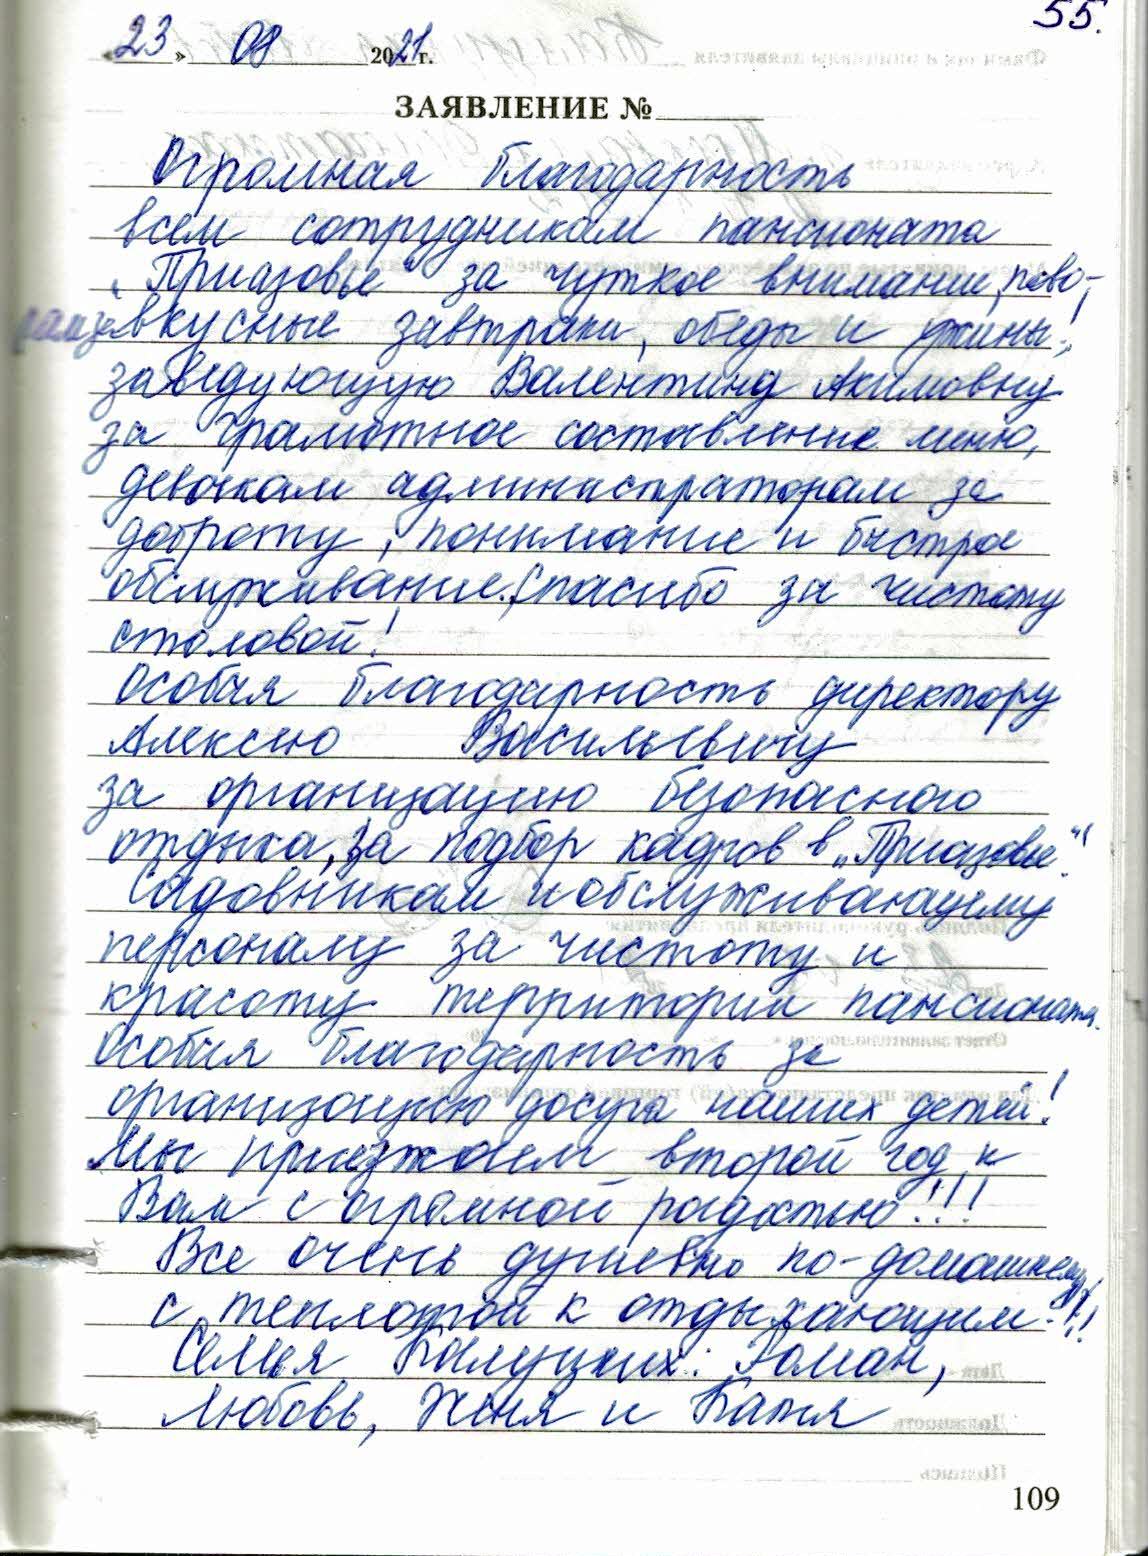 55.
23 » 08 2021 г.
ЗАЯВЛЕНИЕ №
Огромная благодарность
всем сотрудникам пансионата
„Приазовье“ за чуткое внимание, пова-
рам за вкусные завтраки, обеды и ужины!,
заведующую Валентину Акимовну
за грамотное составление меню,
девочкам администраторам за
доброту, понимание и быстрое
обслуживание. Спасибо за чистоту
столовой!
Особая благодарность директору
Алексею Васильевичу
за организацию безопасного
отдыха, за подбор кадров в „Приазовье“.
Садовникам и обслуживающему
персоналу за чистоту и
красоту территории пансионата.
Особая благодарность за
организацию досуга наших детей!
Мы приезжаем второй год к
Вам с огромной радостью!!!
Все очень душевно по-домашнему,
с теплотой к отдыхающим!!!
Семья Калуцких: Роман,
Любовь, Женя и Катя
109